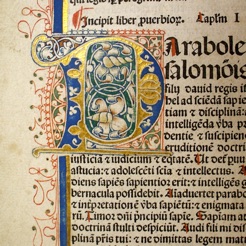 Incipit liber ꝓuerbioꝝ. Capłm I
Parabole
salomōis
filij dauid regis is
bel ad sciēdā sapiē
tiam ⁊ disciplinā:
intelligēda v̄ba
⁊ suscipien
eruditionē doctri
iusticiā ⁊ iudiciū ⁊ eq̄tatē. Ut det
astucia: ⁊ adolescēti sciā ⁊ intellectus.
diens sapiēs sapientior erit: ⁊ intelligēs
bernacula possidebit. Aīaduertet parabo
⁊ int̄pretationē v̄ba sapiētū: ⁊ enigmata
Timor dn̄i pn̄cipiū sapiē. Sapiam
doctrinā stulti despiciūt. Audi fili mi di
plinā pr̄is tui: ⁊ ne dimittas legem